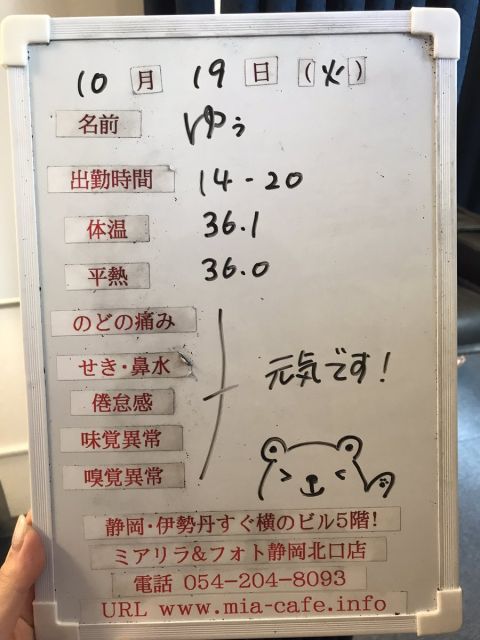 10月19日(火)
名前 ゆう
出勤時間 14-20
体温 36.1
平熱 36.0
のどの痛み
せき・鼻水
倦怠感 元気です!
味覚異常
嗅覚異常
静岡・伊勢丹すぐ横のビル5階!
ミアリラ&フォト静岡北口店
電話 054-204-8093
URL www.mia-cafe.info